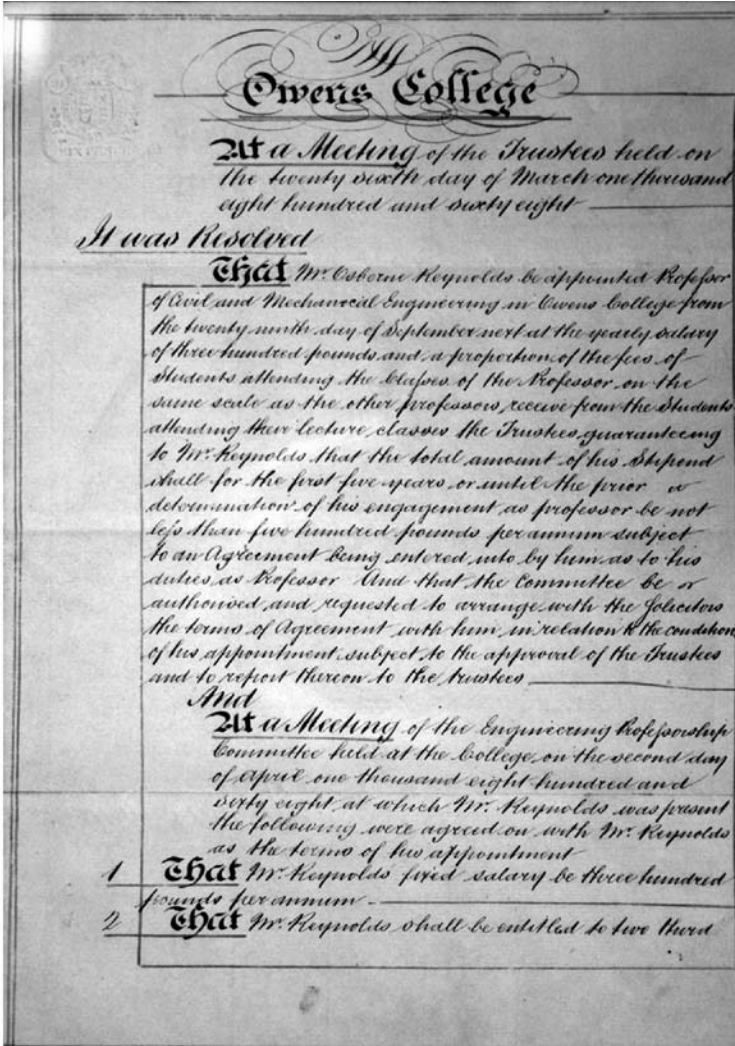 Owens College
At a Meeting of the Trustees held on
the twenty sixth day of March one thousand
eight hundred and sixty eight
It was Resolved
That Mr. Osborne Reynolds be appointed Professor
of Civil and Mechanical Engineering in Owens College from
the twenty ninth day of September next at the yearly salary
of three hundred pounds and a proportion of the fees of
Students attending the Classes of the Professor on the
same scale as the other professors receive from the Students
attending their lecture classes the Trustees guaranteeing
to Mr. Reynolds that the total amount of his Stipend
shall for the first five years or until the prior
determination of his engagement as professor be not
less than five hundred pounds per annum subject
to an Agreement being entered into by him as to his
duties as Professor And that the Committee be
authorised and requested to arrange with the Solicitors
the terms of Agreement with him in relation to the condition
of his appointment subject to the approval of the Trustees
and to report thereon to the trustees
And
At a Meeting of the Engineering Professorship
Committee held at the College on the second day
of April one thousand eight hundred and
sixty eight at which Mr. Reynolds was present
the following were agreed on with Mr. Reynolds
as the terms of his appointment
1 That Mr. Reynolds fixed salary be three hundred
pounds per annum
2 That Mr. Reynolds shall be entitled to two third